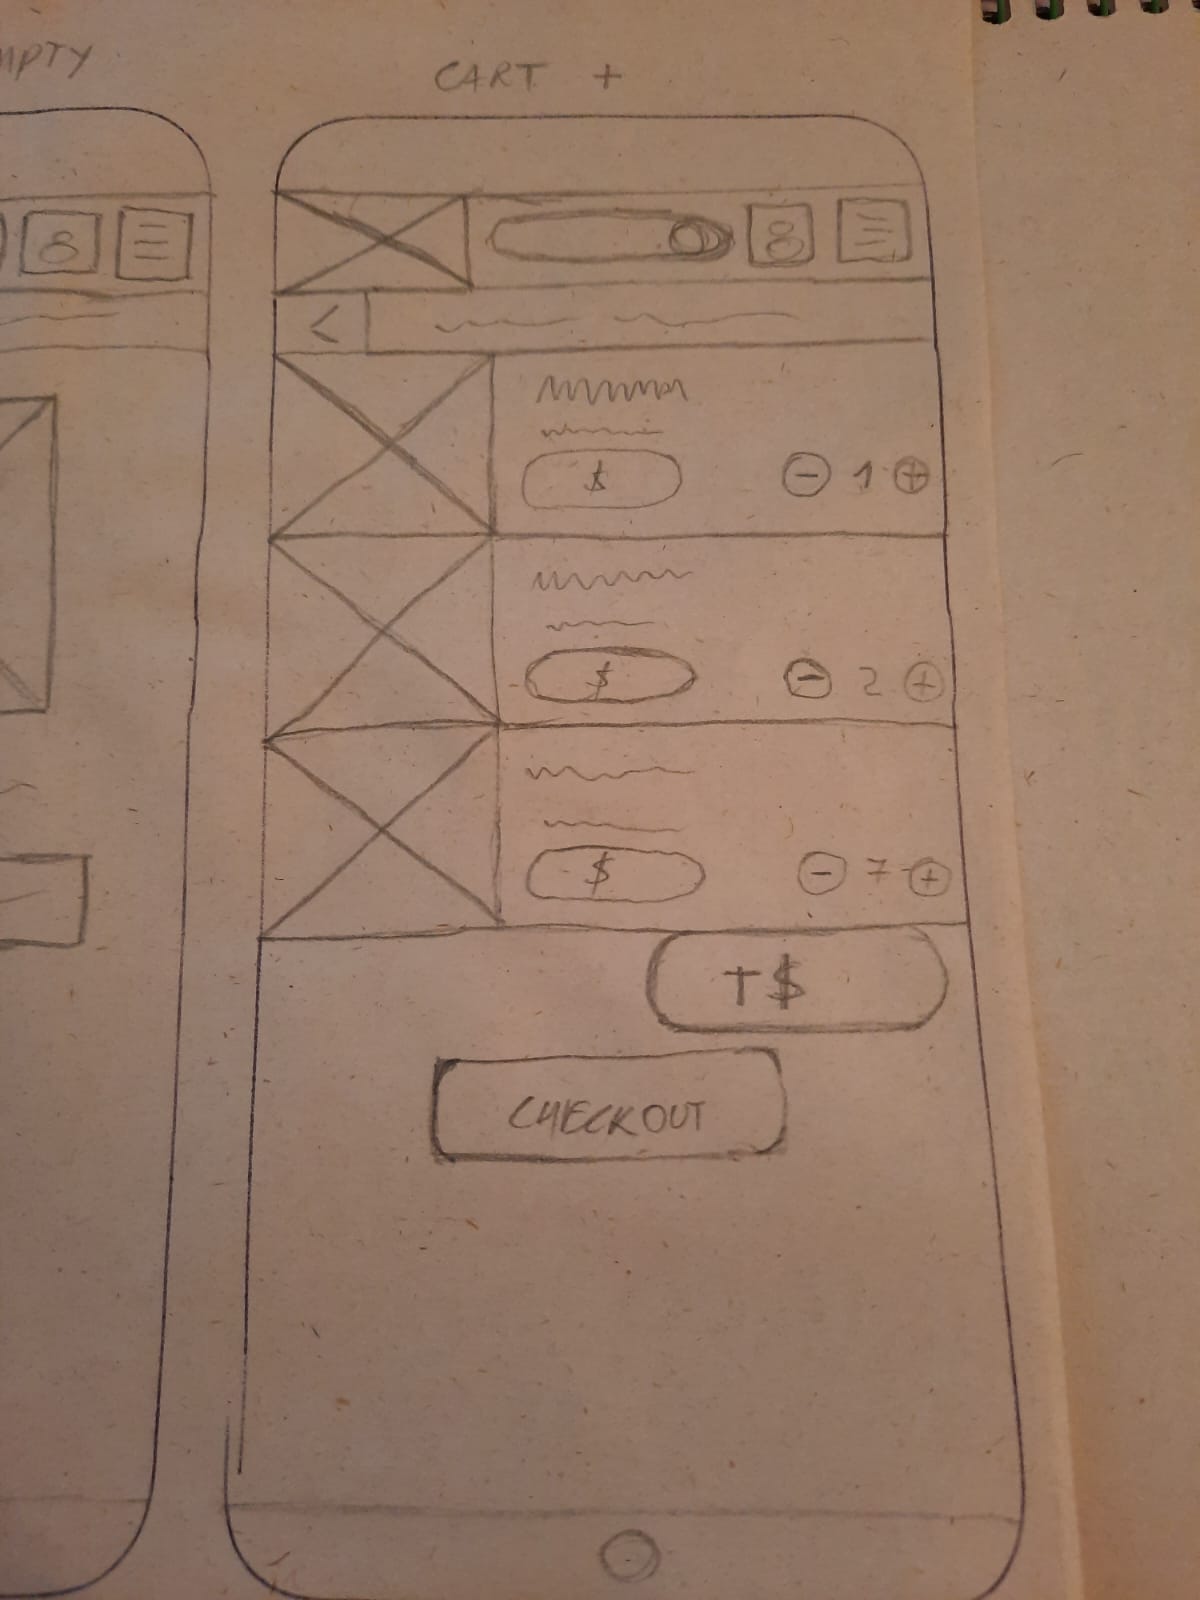 MPTY
CART +
<
$
- 1 +
$
- 2 +
$
- 7 +
T$
CHECKOUT